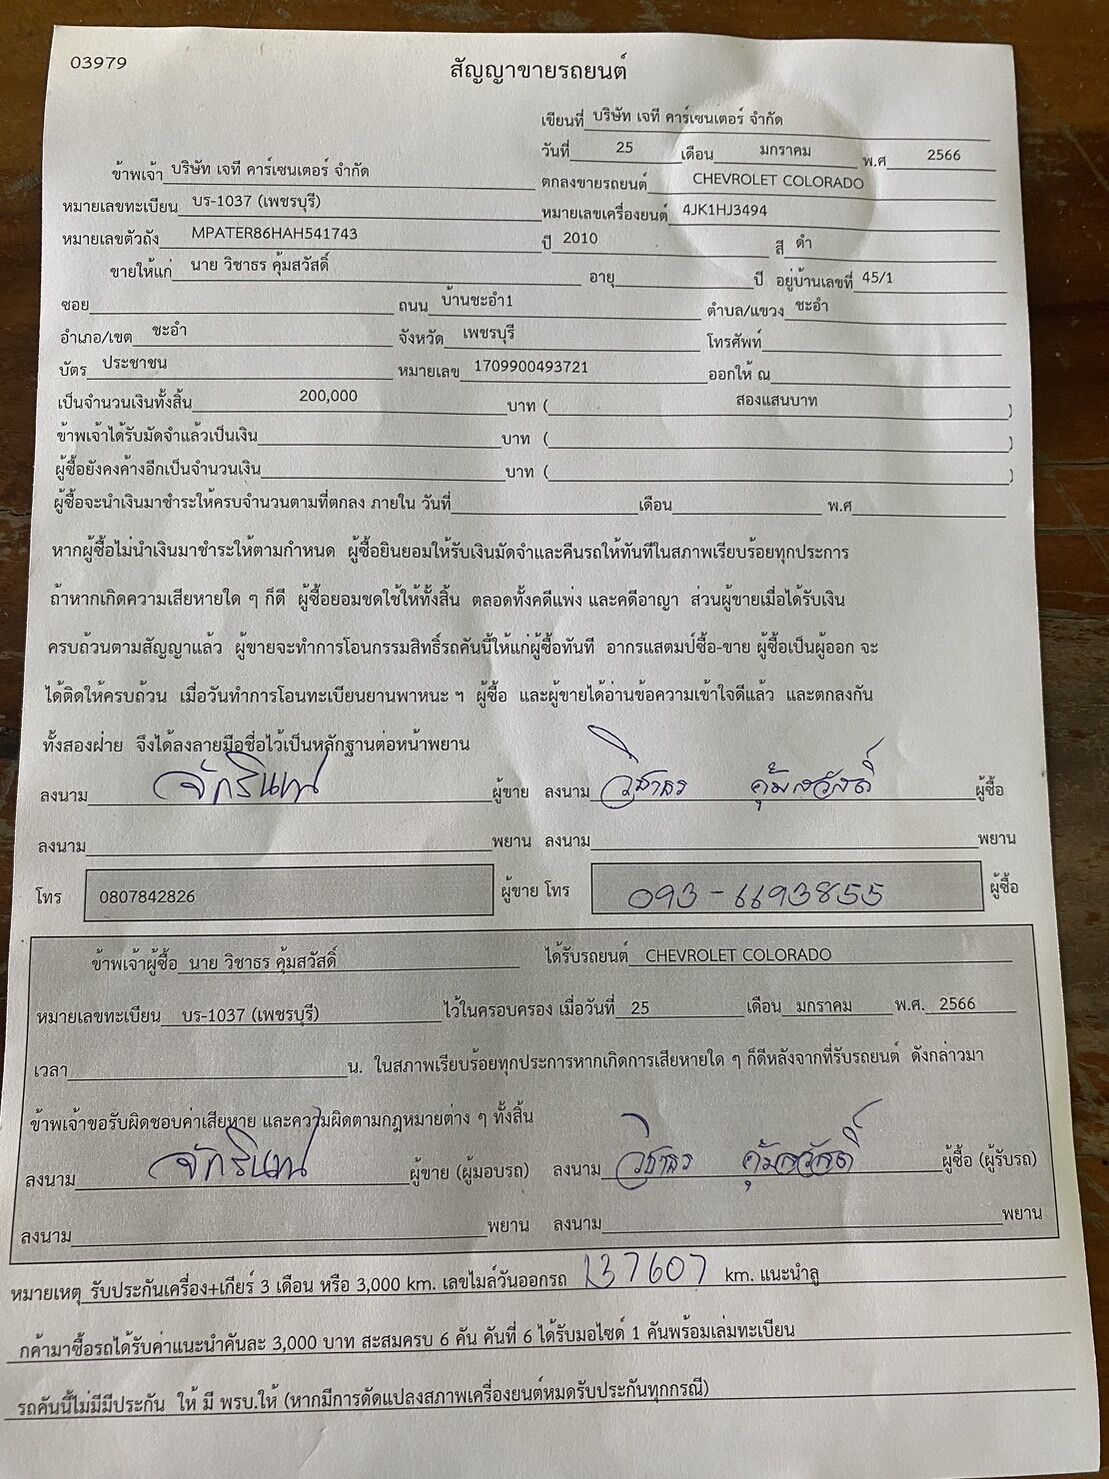 03979
สัญญาขายรถยนต์
เขียนที่ บริษัท เจที คาร์เซนเตอร์ จำกัด
วันที่ 25 เดือน มกราคม พ.ศ 2566
ข้าพเจ้า บริษัท เจที คาร์เซนเตอร์ จำกัด ตกลงขายรถยนต์ CHEVROLET COLORADO
หมายเลขทะเบียน บร-1037 (เพชรบุรี) หมายเลขเครื่องยนต์ 4JK1HJ3494
หมายเลขตัวถัง MPATER86HAH541743 ปี 2010 สี ดำ
ขายให้แก่ นาย วิชาธร คุ้มสวัสดิ์ อายุ ปี อยู่บ้านเลขที่ 45/1
ซอย ถนน บ้านชะอำ1 ตำบล/แขวง ชะอำ
อำเภอ/เขต ชะอำ จังหวัด เพชรบุรี โทรศัพท์
บัตร ประชาชน หมายเลข 1709900493721 ออกให้ ณ
เป็นจำนวนเงินทั้งสิ้น 200,000 บาท ( สองแสนบาท )
ข้าพเจ้าได้รับมัดจำแล้วเป็นเงิน บาท ( )
ผู้ซื้อยังคงค้างอีกเป็นจำนวนเงิน บาท ( )
ผู้ซื้อจะนำเงินมาชำระให้ครบจำนวนตามที่ตกลง ภายใน วันที่ เดือน พ.ศ
หากผู้ซื้อไม่นำเงินมาชำระให้ตามกำหนด ผู้ซื้อยินยอมให้รับเงินมัดจำและคืนรถให้ทันทีในสภาพเรียบร้อยทุกประการ
ถ้าหากเกิดความเสียหายใด ๆ ก็ดี ผู้ซื้อยอมชดใช้ให้ทั้งสิ้น ตลอดทั้งคดีแพ่ง และคดีอาญา ส่วนผู้ขายเมื่อได้รับเงิน
ครบถ้วนตามสัญญาแล้ว ผู้ขายจะทำการโอนกรรมสิทธิ์รถคันนี้ให้แก่ผู้ซื้อทันที อากรแสตมป์ซื้อ-ขาย ผู้ซื้อเป็นผู้ออก จะ
ได้ติดให้ครบถ้วน เมื่อวันทำการโอนทะเบียนยานพาหนะ ฯ ผู้ซื้อ และผู้ขายได้อ่านข้อความเข้าใจดีแล้ว และตกลงกัน
ทั้งสองฝ่าย จึงได้ลงลายมือชื่อไว้เป็นหลักฐานต่อหน้าพยาน
ลงนาม จักรินทน์ ผู้ขาย ลงนาม วิชาธร คุ้มสวัสดิ์ ผู้ซื้อ
ลงนาม พยาน ลงนาม พยาน
โทร 0807842826 ผู้ขาย โทร 093-6693855 ผู้ซื้อ
ข้าพเจ้าผู้ซื้อ นาย วิชาธร คุ้มสวัสดิ์ ได้รับรถยนต์ CHEVROLET COLORADO
หมายเลขทะเบียน บร-1037 (เพชรบุรี) ไว้ในครอบครอง เมื่อวันที่ 25 เดือน มกราคม พ.ศ. 2566
เวลา น. ในสภาพเรียบร้อยทุกประการหากเกิดการเสียหายใด ๆ ก็ดีหลังจากที่รับรถยนต์ ดังกล่าวมา
ข้าพเจ้าขอรับผิดชอบค่าเสียหาย และความผิดตามกฎหมายต่าง ๆ ทั้งสิ้น
ลงนาม จักรินทน์ ผู้ขาย (ผู้มอบรถ) ลงนาม วิชาธร คุ้มสวัสดิ์ ผู้ซื้อ (ผู้รับรถ)
ลงนาม พยาน ลงนาม พยาน
หมายเหตุ รับประกันเครื่อง+เกียร์ 3 เดือน หรือ 3,000 km. เลขไมล์วันออกรถ 137607 km. แนะนำลู
กค้ามาซื้อรถได้รับค่าแนะนำคันละ 3,000 บาท สะสมครบ 6 คัน คันที่ 6 ได้รับมอไซด์ 1 คันพร้อมเล่มทะเบียน
รถคันนี้ไม่มีมีประกัน ให้ มี พรบ.ให้ (หากมีการดัดแปลงสภาพเครื่องยนต์หมดรับประกันทุกกรณี)